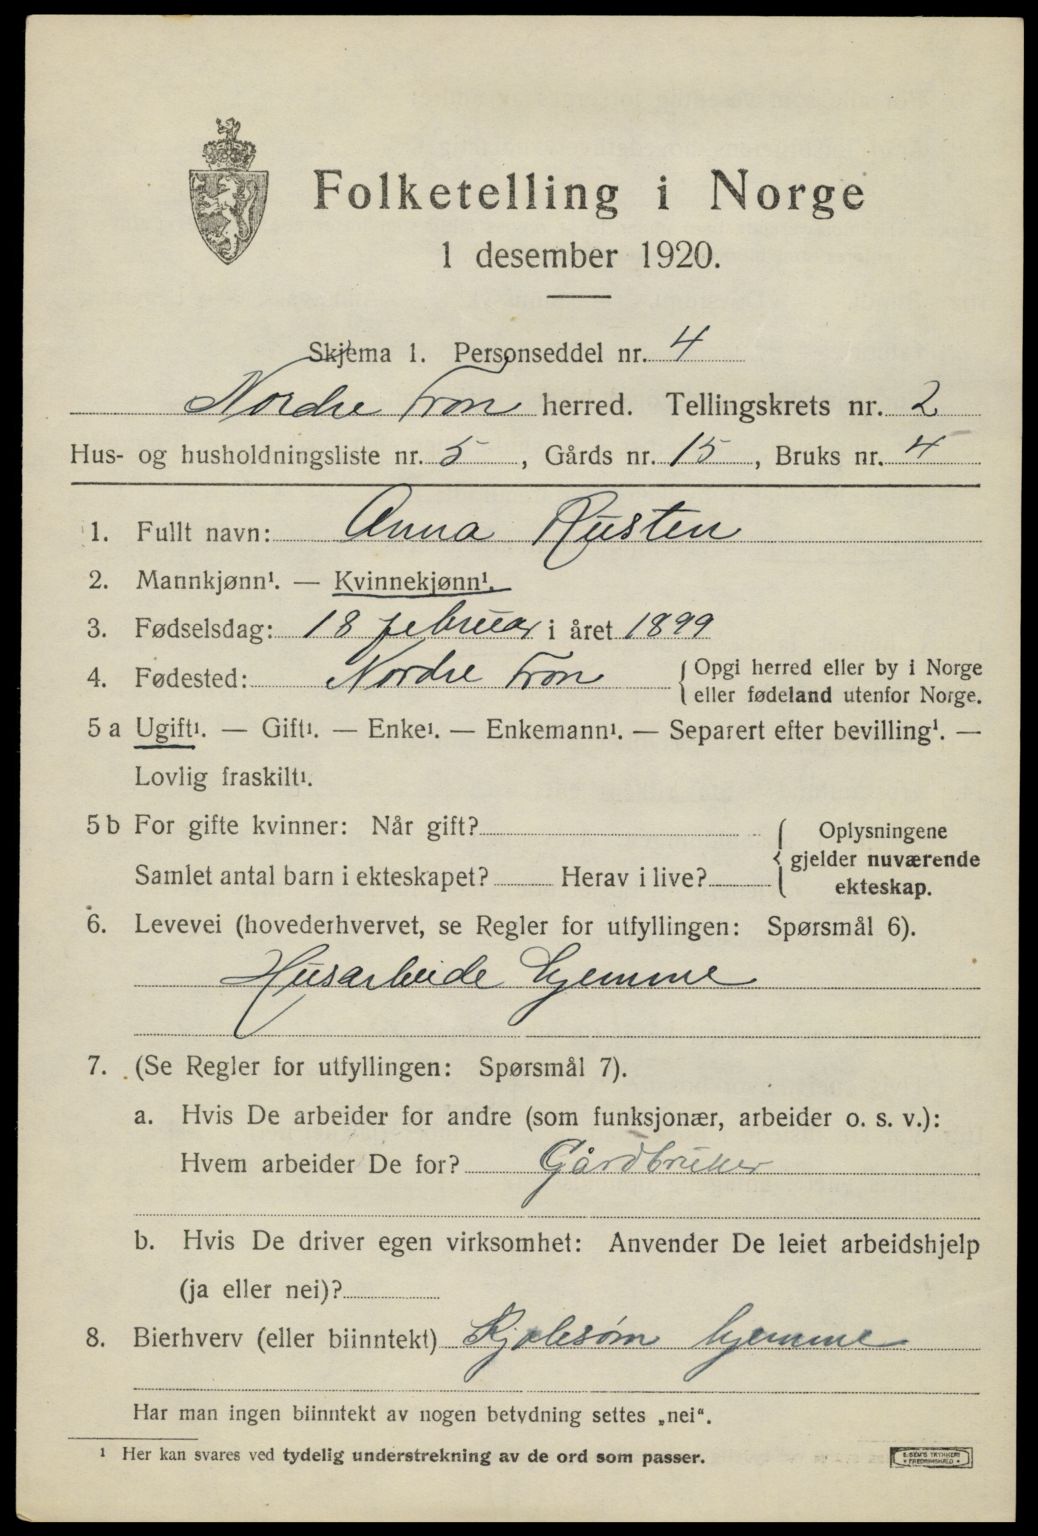 Folketelling i Norge
1 desember 1920.
Skjema 1. Personseddel nr. 4
Nordre Fron herred. Tellingskrets nr. 2
Hus- og husholdningsliste nr. 5, Gårds nr. 15, Bruks nr. 4
1. Fullt navn: Anna Rusten
2. Mannkjønn¹. — Kvinnekjønn¹.
3. Fødselsdag: 18 februar i året 1899
4. Fødested: Nordre Fron { Opgi herred eller by i Norge
eller fødeland utenfor Norge.
5 a Ugift¹. — Gift¹. — Enke¹. — Enkemann¹. — Separert efter bevilling¹. —
Lovlig fraskilt¹.
5 b For gifte kvinner: Når gift? { Oplysningene
gjelder nuværende
Samlet antal barn i ekteskapet? Herav i live?
ekteskap.
6. Levevei (hovederhvervet, se Regler for utfyllingen: Spørsmål 6).
Husarbeide hjemme
7. (Se Regler for utfyllingen: Spørsmål 7).
a. Hvis De arbeider for andre (som funksjonær, arbeider o. s. v.):
Hvem arbeider De for? Gårdbruker
b. Hvis De driver egen virksomhet: Anvender De leiet arbeidshjelp
(ja eller nei)?
8. Bierhverv (eller biinntekt) Kjolesøm hjemme
Har man ingen biinntekt av nogen betydning settes „nei“.
¹ Her kan svares ved tydelig understrekning av de ord som passer.
E. SEM'S TRYKKERI
FREDRIKSHALD